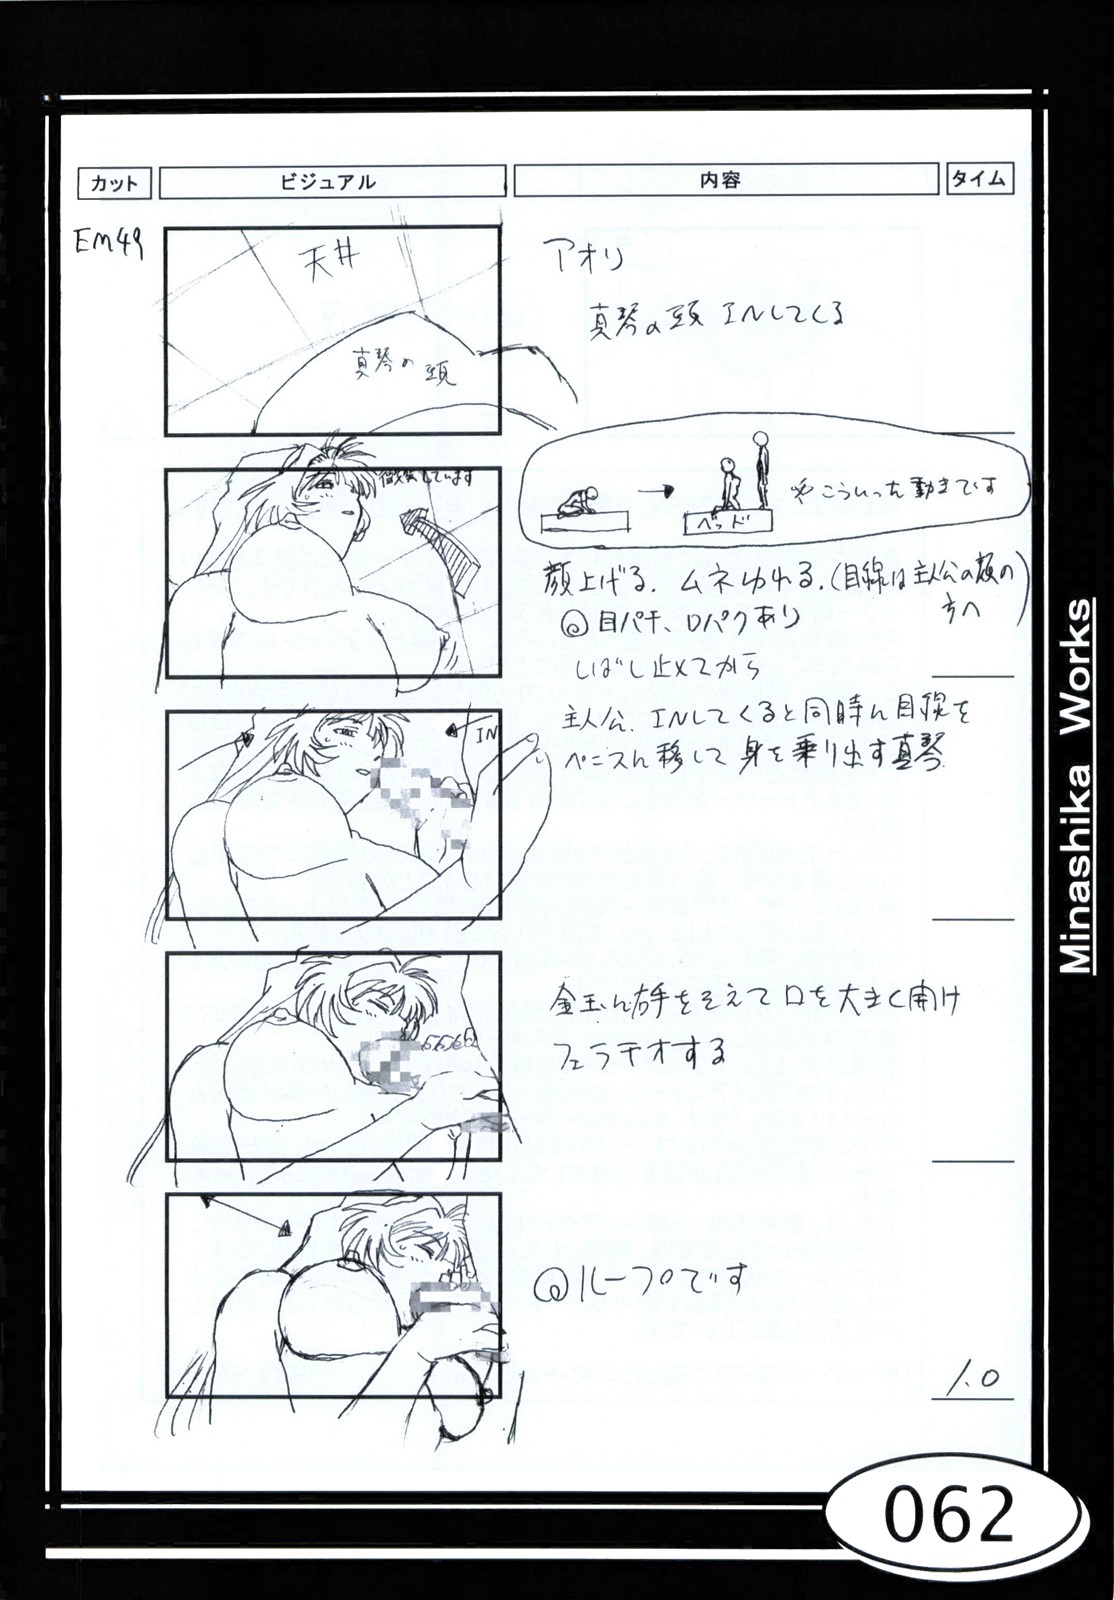 カット
ビジュアル
内容
タイム
EM49
天井
真琴の頭
アオリ
真琴の頭 INしてくる
微笑しています
ベッド
こういった動きです
顔上げる、ムネゆれる、(目線は主人公の顔の方へ)
目パチ、口パクあり
しばし止めてから
主人公、INしてくると同時に目線を
ペニスに移して身を乗り出す真琴
IN
金玉に右手をそえて口を大きく開け
フェラチオする
ループです
1.0
Minashika Works
062